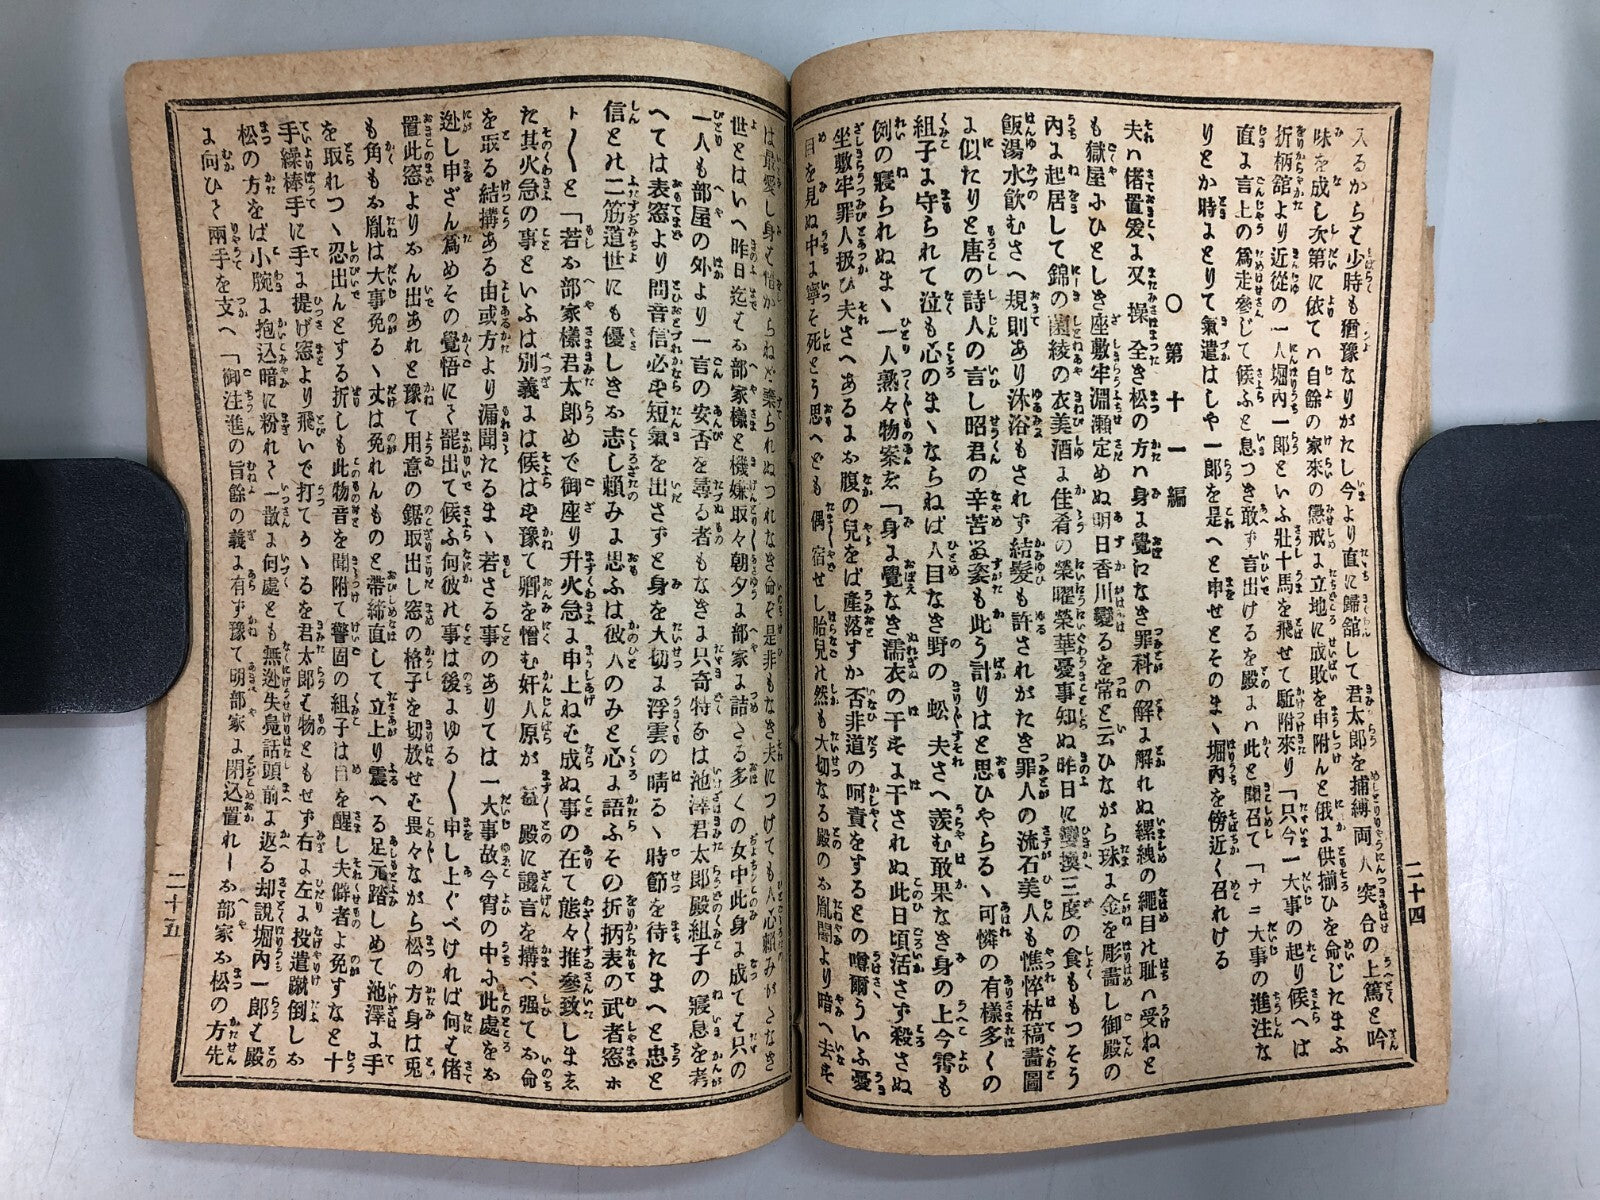 入るからむ少時も猶豫なりがたし今より直に歸舘して君太郎を捕縛両人突合の上篤と吟
味を成し次第に依てハ自餘の家來の懲戒よ立地に成敗を申附んと俄よ供揃ひを命じたまふ
折柄舘より近從の一人堀內一郎といふ壯士馬を飛せて駈附來り「只今一大事の起り候へば
直よ言上の爲走參じて候ふと息つき敢ず言出けるを殿よハ此と聞召て「ナニ大事の進注な
りとか時よとりて氣遣はしや一郎を是へと申せとそのまゝ堀內を傍近く召れける
○第十一編
夫ハ偖置爰よ又操全き松の方ハ身よ覺になき罪科の解よ解れぬ縲絏の繩目ハ耻ハ受ねと
も獄屋ふひとしき座敷牢淵瀬定めぬ明日香川變るを常と云ひながら珠よ金を彫畵し御殿の
內よ起居して錦の茵綾の衣美酒よ佳肴の榮曜榮華憂事知ぬ昨日に變換三度の食ももつそう
飯湯水飮むさへ規則あり沐浴もされず結髮も許されがたき罪人の流石美人も憔悴枯稿畵圖
よ似たりと唐の詩人の言し昭君の辛苦姿も此う計りはと思ひやらるゝ可憐の有樣多くの
組子よ守られて泣も心のまゝならねば人目なき野の蚣夫さへ羨む敢果なき身の上今霄も
例の寢られぬまゝ一人熟々物案ゑ「身よ覺なき濡衣の干ずよ干されぬ此日頃活さず殺さぬ
坐敷牢罪人扱ひ夫さへあるよお腹の兒をば產落すか否非道の呵責をするとの噂爾ういふ憂
目を見ぬ中よ寧そ死とう思へども偶宿せし胎兒ハ然も大切なる殿のお胤闇より暗へ去ず
は最愛し身む惜からねど棄られぬつれなき命ぞ是非もなき夫につけても人心賴みがたなき
世とはいへ昨日迄むお部家樣と機嫌取々朝夕よ部家よ詰ざる多くの女中此身よ成てむ只の
一人も部屋の外より一言の安否を尋る者もなきよ只奇特なは池澤君太郎殿組子の寢息を考
へては表窓より問音信必ず短氣を出さずと身を大切よ浮雲の晴るゝ時節を待たまへと忠と
信とハ二筋道世にも優しきお志し賴みよ思ふは彼人のみと心よ語ふその折柄表の武者窓ホ
ト〱と「若お部家樣君太郎めで御座り升火急よ申上ねむ成ぬ事の在て態々推參致しまゑ
た其火急の事といふは別義よは候はず豫て卿を憎む奸人原が益殿に讒言を搆べ强てお命
を取る結搆ある由或方より漏聞たるまゝ若さる事のありては一大事故今宵の中ふ此處をお
迯し申ざん爲めその覺悟にて罷出て候ふ何彼ハ事は後よゆる〱申し上ぐべければ何む偖
置此窓よりお出あれと豫て用意の鋸取出し窓の格子を切放せむ畏々ながら松の方身は兎
も角もお胤は大事免るゝ丈は免れんものと帶締直して立上り震へる足元踏しめて池澤よ手
を取れつゝ忍出んとする折しも此物音を聞附て警固の組子は目を醒し夫僻者よ免すなと十
手繰棒手に手よ提げ窓より飛いで打てかゝるを君太郎む物ともせず右よ左よ投遣蹴倒しお
松の方をば小腕よ抱込暗に粉れて一散よ何處とも無迯失凫話頭前よ返る却説堀內一郎む殿
よ向ひて兩手を支へ「御注進の旨餘の義よ有ず豫て明部家よ閉込置れーお部家お松の方先
二十四
二十五